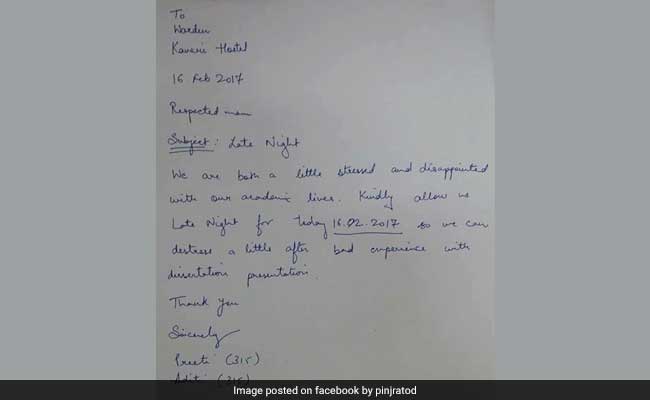 To
Warden
Kaveri Hostel
16 Feb 2017
Respected mam
Subject: Late Night
We are both a little stressed and disappointed
with our academic lives. Kindly allow us
Late Night for today 16.02.2017 so we can
destress a little after bad experience with
dissertation presentation.
Thank you
Sincerely
Preeti (315)
Aditi
Image posted on facebook by pinjratod